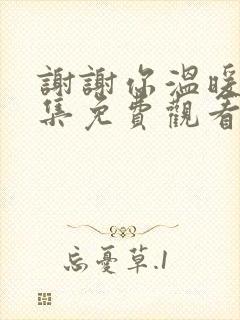 謝謝你溫暖
集免費觀看
忘憂草.1